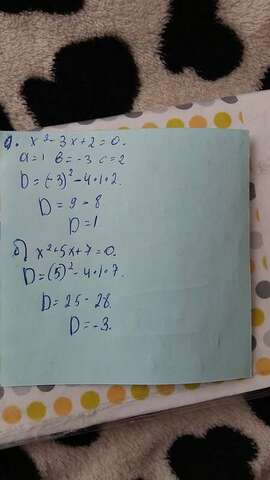 а. x²-3x+2=0.
a=1 b=-3 c=2
D=(-3)²-4·1·2.
D=9-8
D=1.
б) x²+5x+7=0.
D=(5)²-4·1·7.
D=25-28.
D=-3.